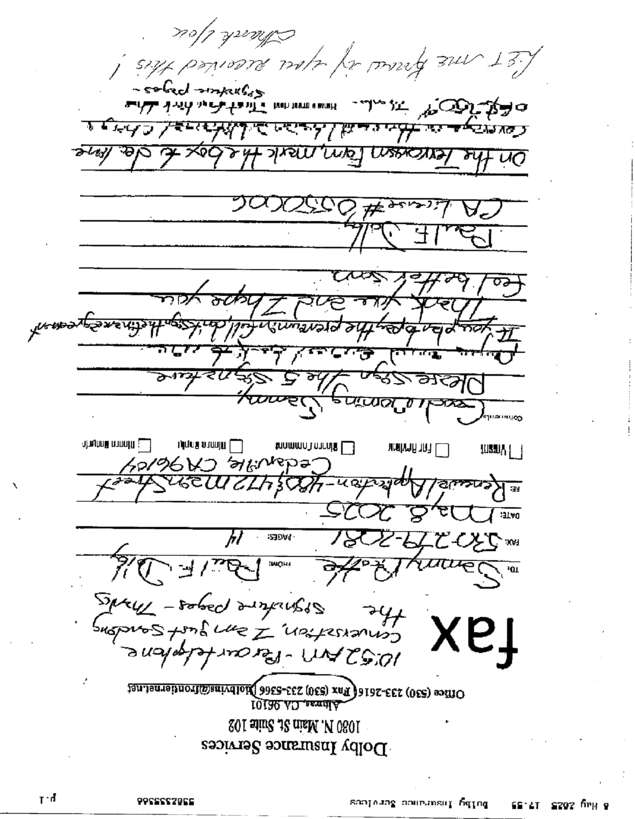 8 May 2025 17:55 Dolby Insurance Services 5302335566 p.1
Dolby Insurance Services
1080 N. Main St, Suite 102
Alturas, CA 96101
Office (530) 233-2616 Fax (530) 233-5566 dolbyins@frontiernet.net
fax
10:52 AM - Per our telephone
conversation, I am just sending
the signature pages - Thanks
TO: Sammy FROM: Paul F. Dolby
FAX: 530 279-2081 PAGES: 14
DATE: May 8 2025
RE: Renewal Application - 480 & 472 Main Street
Cedarville, CA 96104
Urgent For Review Please Comment Please Reply
Comments: Good Morning Sammy,
Please sign the 5 signature
If you plan to pay the premium in full, don't sign the finance agreement
Thank you and I hope you
feel better soon
Paul F. Dolby
CA License #
On the Terrorism Form, mark the box to decline
coverage
Signature pages -
Let me know if you received this!
Thank you